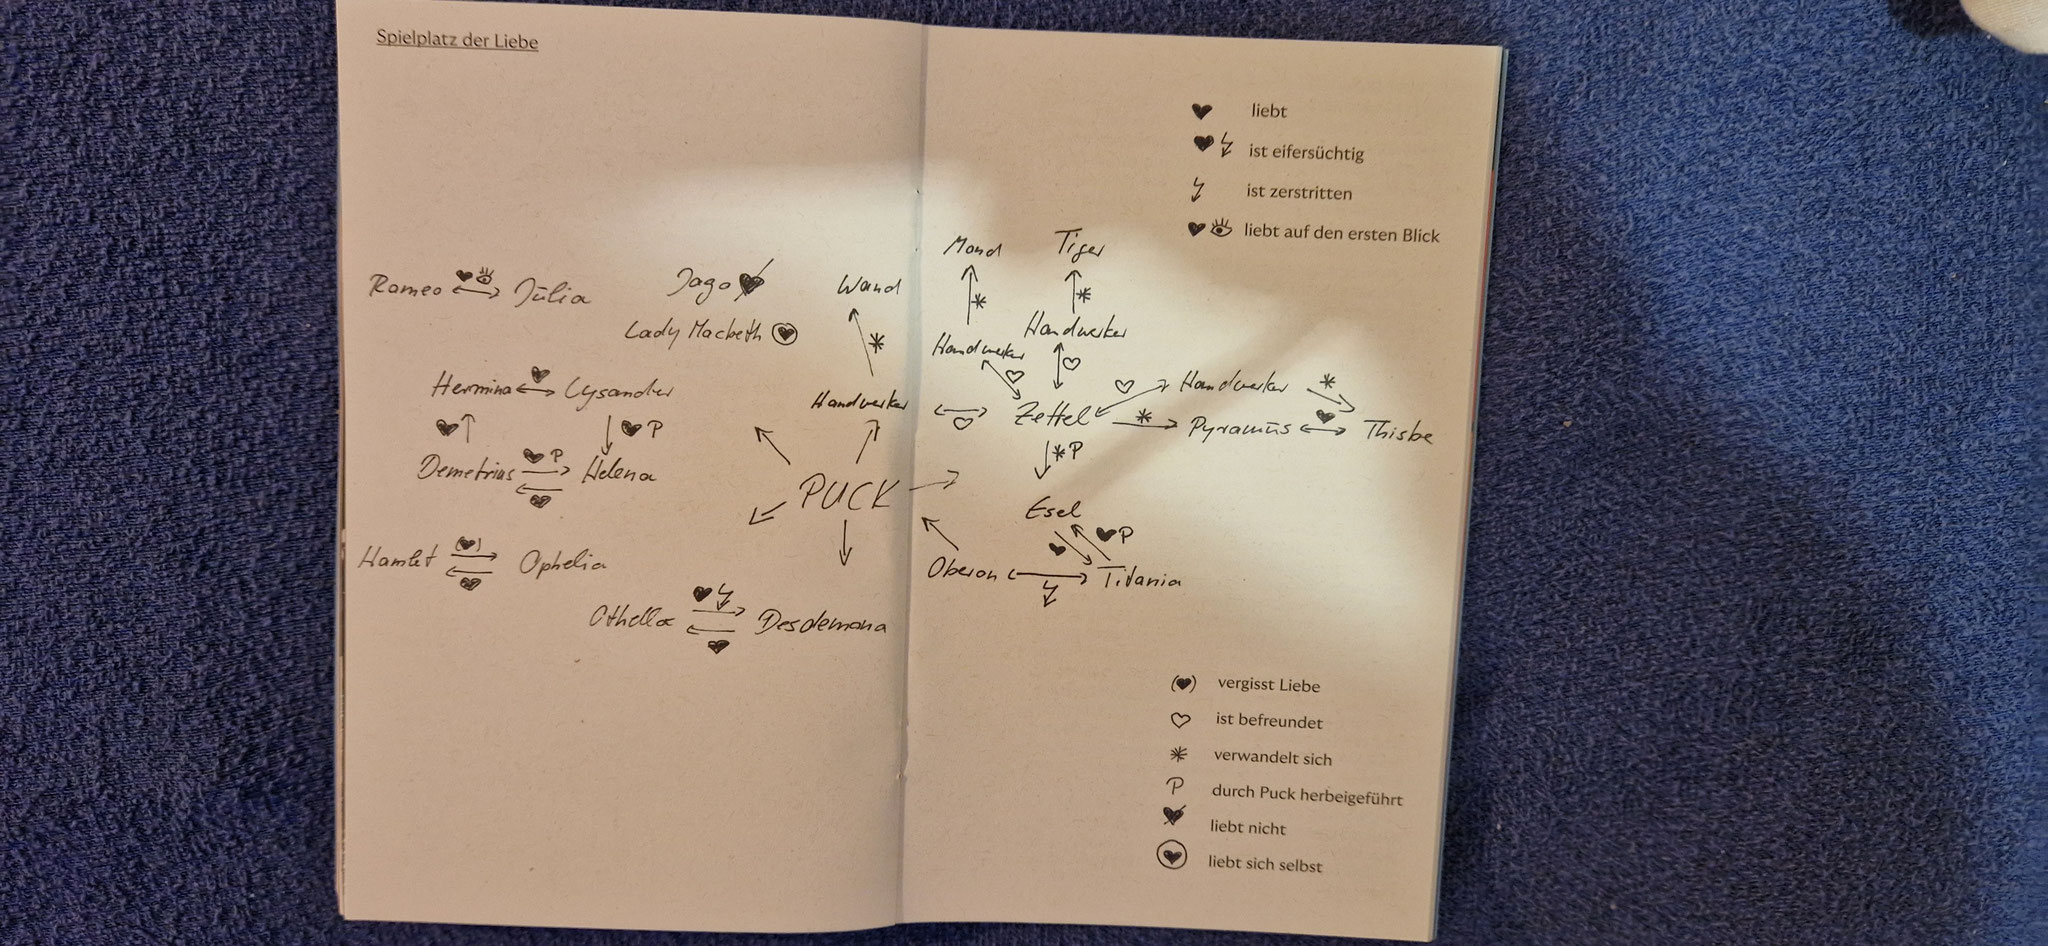 Spielplatz der Liebe
♥ liebt
♥ ϟ ist eifersüchtig
ϟ ist zerstritten
♥ 👁 liebt auf den ersten Blick
Romeo ♥ 👁 Julia
Jago
Lady Macbeth
Wand
Mond
Tiger
Handwerker
Handwerker
Handwerker
Handwerker
Hermina ♥ Lysander
♥ ♥ P
Demetrius ♥ P Helena
♥
Zettel * Pyramus ♥ Thisbe
* P
PUCK
Esel
♥ ♥ P
Hamlet (♥) Ophelia
♥
Oberon ϟ Titania
Othello ♥ ϟ Desdemona
♥
(♥) vergisst Liebe
♡ ist befreundet
* verwandelt sich
P durch Puck herbeigeführt
liebt nicht
liebt sich selbst